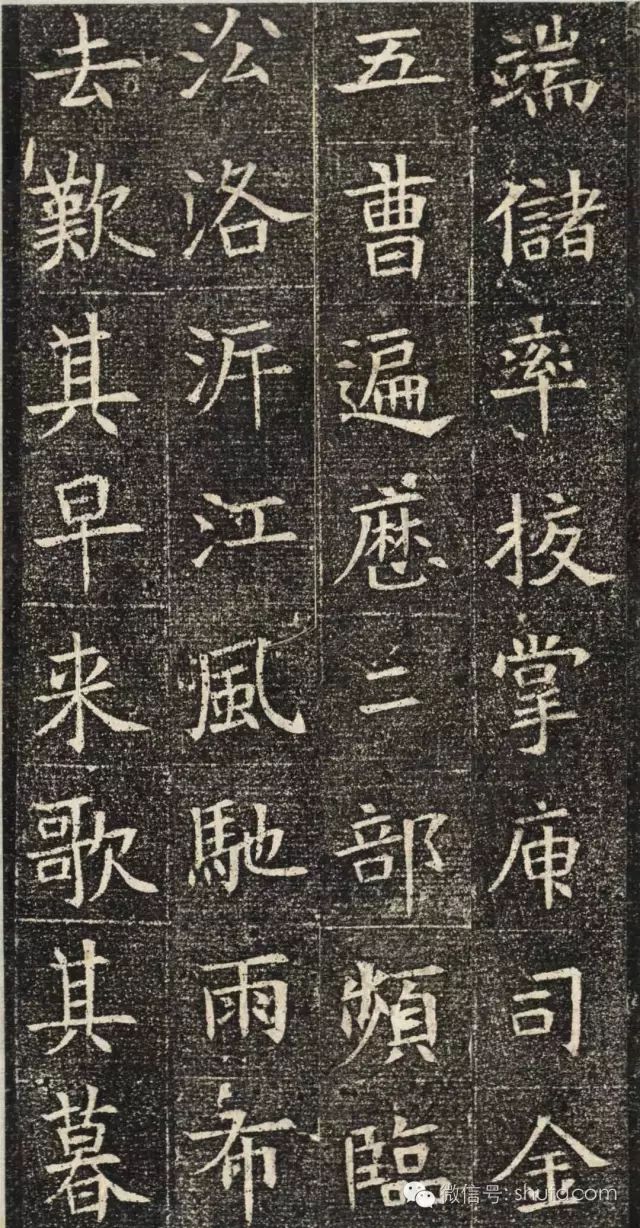 端儲率掌司金
五曹遍歷二部頻臨
沿洛泝江風馳雨布
去歎其早来歌其暮
微信号: shufa.com